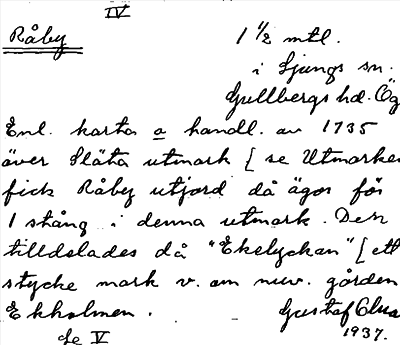 IV
Råby 1 1/2 mtl.
i Ljungs sn.
Gullbergs hd. Ög
Enl. karta o handl. av 1735
över Släta utmark [ se Utmarken
fick Råby utjord då ägor för
1 stång i denna utmark. Den
tilldelades då "Ekelyckan" [ ett
stycke mark v. om nuv. gården
Ekholmen. Gustaf
Se V 1937.